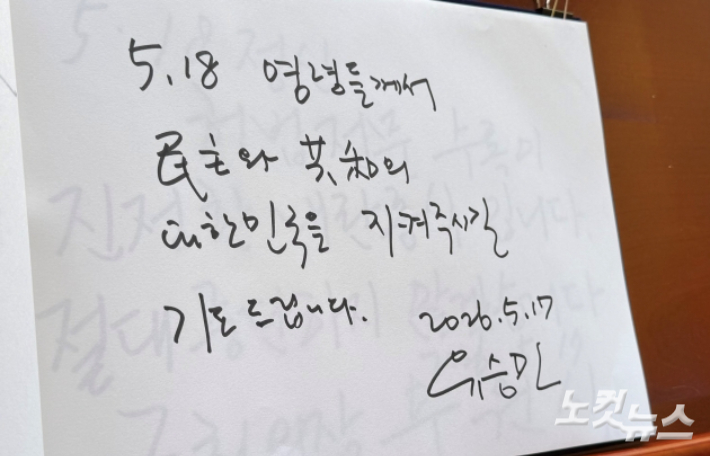 5.18 영령들께서
民主와 共和의
대한민국을 지켜주시길
기도드립니다.
2026.5.17
유승민
노컷뉴스